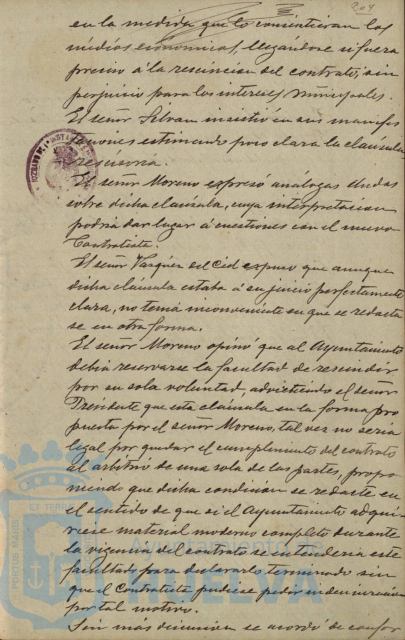 204
en la medida que lo consintieran los
medios economicos, llegándose si fuera
preciso á la rescincion del contrato, sin
perjuicio para los intereses municipales.
El señor Silvan insistió en sus manifes
taciones estimando poco clara la claúsula
rescisoria.
El señor Moreno expresó análogas dudas
sobre dicha claúsula, cuya interpretacion
podria dar lugar á cuestiones con el nuevo
Contratista.
El señor Vazquez del Cid expuso que aunque
dicha claúsula estaba á su juicio perfectamente
clara, no tenia inconveniente en que se redacta
se en otra forma.
El señor Moreno opinó que al Ayuntamiento
debia reservarse la facultad de rescindir
por su sola voluntad, advirtiendo el señor
Presidente que esta claúsula en la forma pro
puesta por el señor Moreno, tal vez no seria
legal por quedar el cumplimiento del contrato
al arbitrio de una sola de las partes, propo
niendo que dicha condicion se redacte en
el sentido de que si el Ayuntamiento adqui
riese material moderno completo durante
la vigencia del contrato se entenderia este
facultado para declararlo terminado sin
que el Contratista pudiese pedir indemnizacion
por tal motivo.
Sin mas discusion se acordó de confor
PORTUS MARIS
ET TERRAE
HUELVA